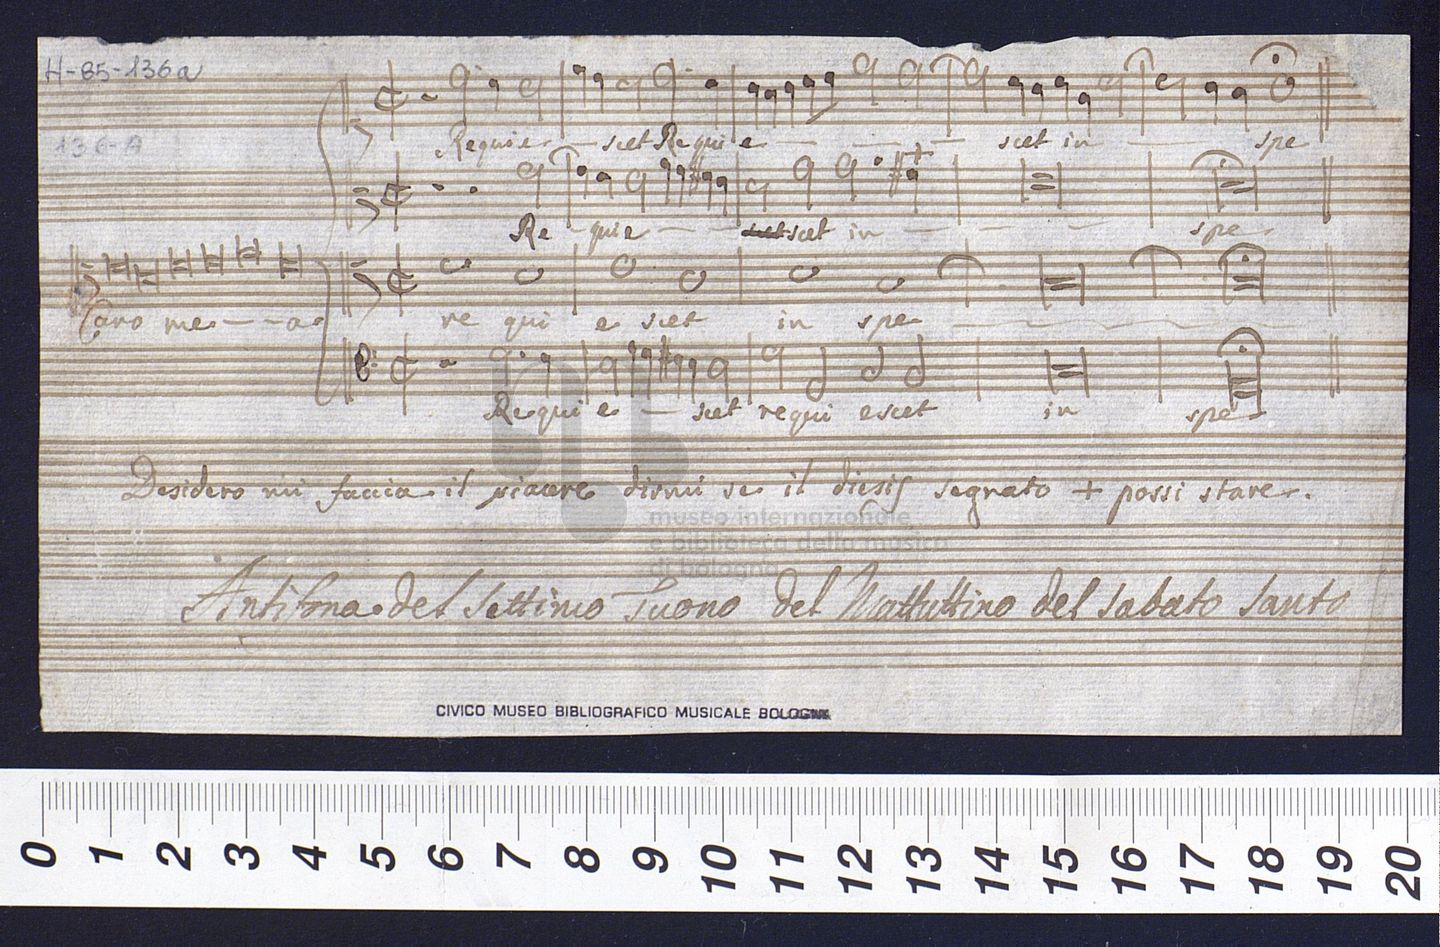 H-85-136a
136-A
Requie - scet Requie - - - - scet in - - spe
Re - quie - - - scet in - - - spe
Caro me - - a re qui e scet in spe
Requi e - scet requi escet in spe
Desidero mi faccia il piacere dirmi se il diesis segnato + possi stare.
museo internazionale
e biblioteca della musica
di bologna
Antifona del settimo Tuono del Mattuttino del sabato santo
CIVICO MUSEO BIBLIOGRAFICO MUSICALE BOLOGNA
0 1 2 3 4 5 6 7 8 9 10 11 12 13 14 15 16 17 18 19 20